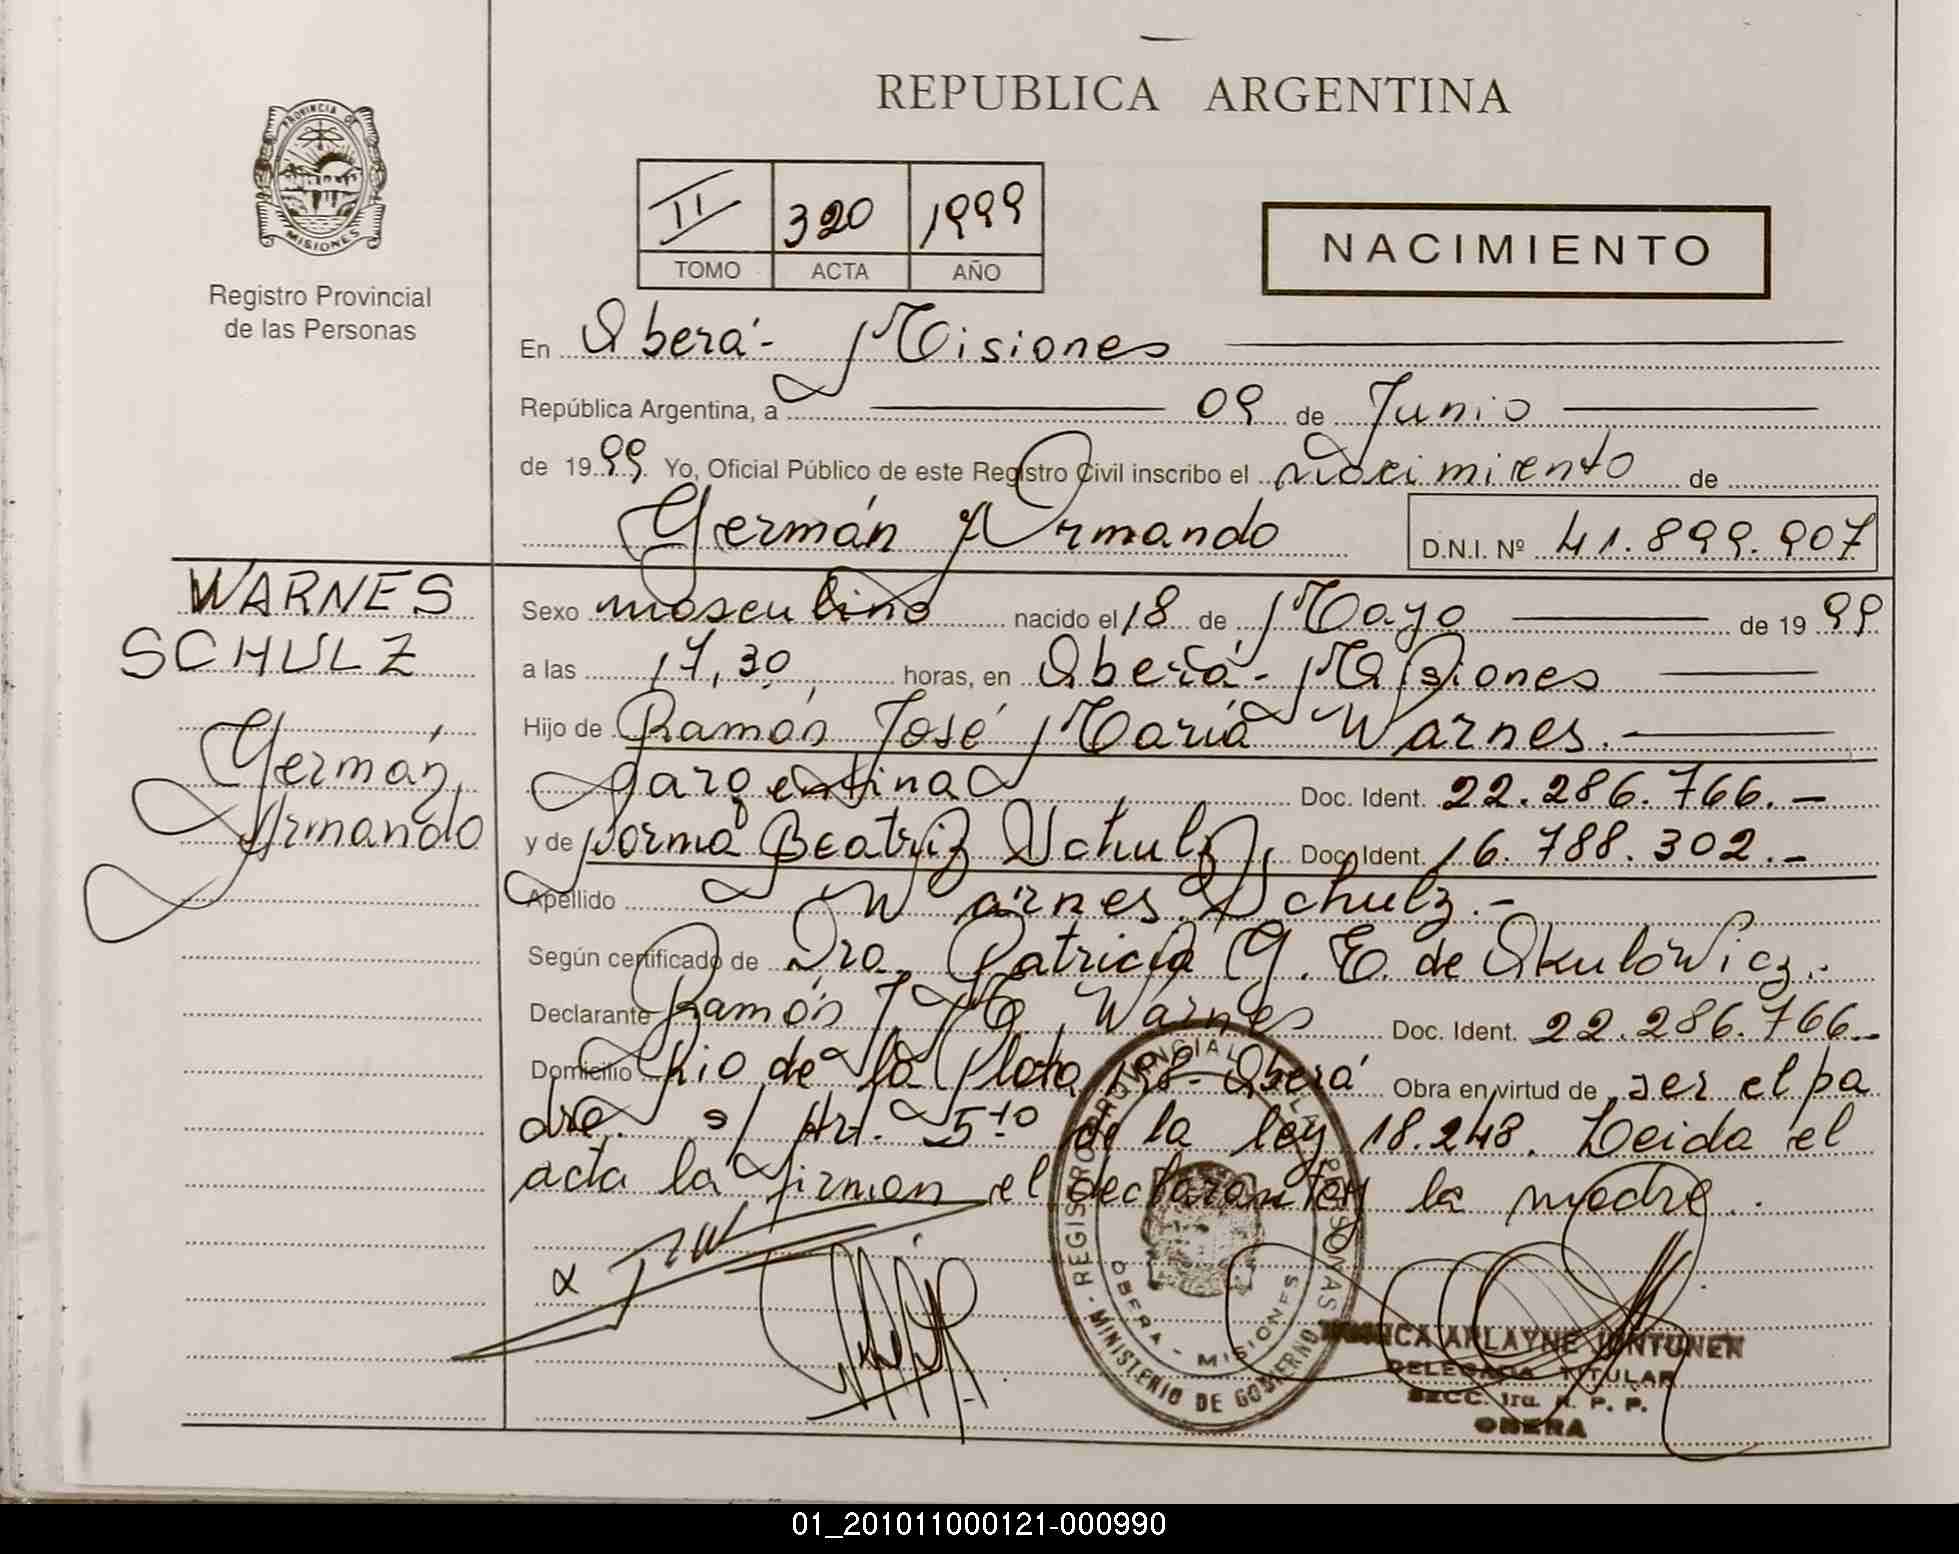 REPUBLICA ARGENTINA
PROVINCIA DE
MISIONES
Registro Provincial
de las Personas
II 320 1999
TOMO ACTA AÑO
NACIMIENTO
En Oberá- Misiones
República Argentina, a 09 de Junio
de 1999 Yo, Oficial Público de este Registro Civil inscribo el nacimiento de
Germán Armando D.N.I. Nº 41.899.907
WARNES
SCHULZ
Germán
Armando
Sexo masculino nacido el 18 de Mayo de 1999
a las 17,30 horas, en Oberá- Misiones
Hijo de Ramón José María Warnes.
argentina Doc. Ident. 22.286.766.-
y de Norma Beatriz Schulz Doc. Ident. 16.788.302.-
Apellido Warnes Schulz.-
Según certificado de Dra. Patricia G. E. de Skulowicz.
Declarante Ramón J. M. Warnes Doc. Ident. 22.286.766.-
Domicilio Rio de la Plata 198- Oberá Obra en virtud de ser el pa
dre. s/ Art. 5to de la ley 18.248. Leida el
acta la firman el declarante y la madre.
REGISTRO PROVINCIAL DE LAS PERSONAS
OBERA - MISIONES
MINISTERIO DE GOBIERNO
ARLAYNE JONTUNEN
DELEGADA TITULAR
SECC. 1ra. R. P. P.
OBERA
01_201011000121-000990